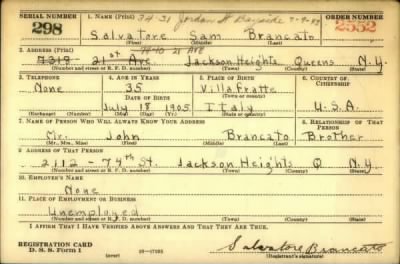 SERIAL NUMBER 1. NAME (Print) 34-31 Jordan St Bayside ORDER NUMBER
298 Salvatore Sam Brancato 2552
(First) (Middle) (Last)
2. ADDRESS (Print) 74-10 21 Ave
7319 21st Ave Jackson Heights Queens N.Y.
(Number and street or R. F. D. number) (Town) (County) (State)
3. TELEPHONE 4. AGE IN YEARS 5. PLACE OF BIRTH 6. COUNTRY OF CITIZENSHIP
None 35 Villafratte
DATE OF BIRTH (Town or county)
July 18 1905 Italy U.S.A.
(Exchange) (Number) (Mo.) (Day) (Yr.) (State or country)
7. NAME OF PERSON WHO WILL ALWAYS KNOW YOUR ADDRESS 8. RELATIONSHIP OF THAT PERSON
Mr. John Brancato Brother
(Mr., Mrs., Miss) (First) (Middle) (Last)
9. ADDRESS OF THAT PERSON
2112 - 74th St. Jackson Heights Q N.Y.
(Number and street or R. F. D. number) (Town) (County) (State)
10. EMPLOYER'S NAME
None
11. PLACE OF EMPLOYMENT OR BUSINESS
Unemployed
(Number and street or R. F. D. number) (Town) (County) (State)
I AFFIRM THAT I HAVE VERIFIED ABOVE ANSWERS AND THAT THEY ARE TRUE.
REGISTRATION CARD
D. S. S. Form 1 (over) Salvatore Brancato
(Registrant's signature)